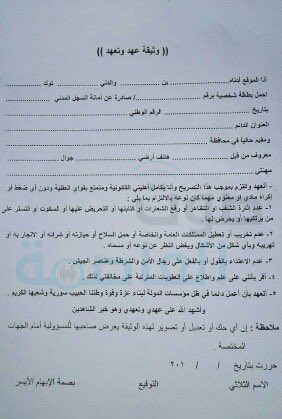 (( وثيقة عهد وتعهد ))
أنا الموقع أدناه ........ بن ........ والدتي ........ تولد ........
احمل بطاقة شخصية برقم ........ / صادرة عن أمانة السجل المدني
بتاريخ ........ الرقم الوطني
العنوان الدائم
ومقيم حاليا في محافظة
معروف من قبل ........ هاتف أرضي ........ جوال
مهنتي
- أتعهد والتزم بموجب هذا التصريح وأنا بكامل أهليتي القانونية ومتمتع بقواي العقلية ودون أي ضغط أو
إكراه مادي او معنوي مهما كان نوعه بالالتزام بما يلي :
١- عدم إثارة الشغب او التظاهر أو رفع الشعارات أو كتابتها أو التحريض عليها أو السكوت أو التستر على
من يرتكبها او يحرض لها.
٢- عدم تخريب أو تعطيل الممتلكات العامة والخاصة أو حمل السلاح أو حيازته أو شرائه أو الاتجار به أو
تهريبه وبأي شكل من الأشكال وبغض النظر عن نوعه او مسماه.
٣- عدم الاعتداء بالقول أو بالفعل على رجال الأمن والشرطة وعناصر الجيش
٤- أقر بأنني على علم واطلاع على العقوبات المترتبة على مخالفتي لذلك .
٥- أتعهد بأن أعمل دائما في ظل مؤسسات الدولة لبناء عزة وقوة وطننا الحبيب سورية وشعبها الكريم .
وأشهد الله على عهدي وتعهدي وهو خير الشاهدين
ملاحظة : إن أي حك أو تعديل أو تصوير لهذه الوثيقة يعرض صاحبها للمسؤولية أمام الجهات
المختصة .
حررت بتاريخ / / ٢٠١
الاسم الثلاثي التوقيع بصمة الإبهام الأيسر